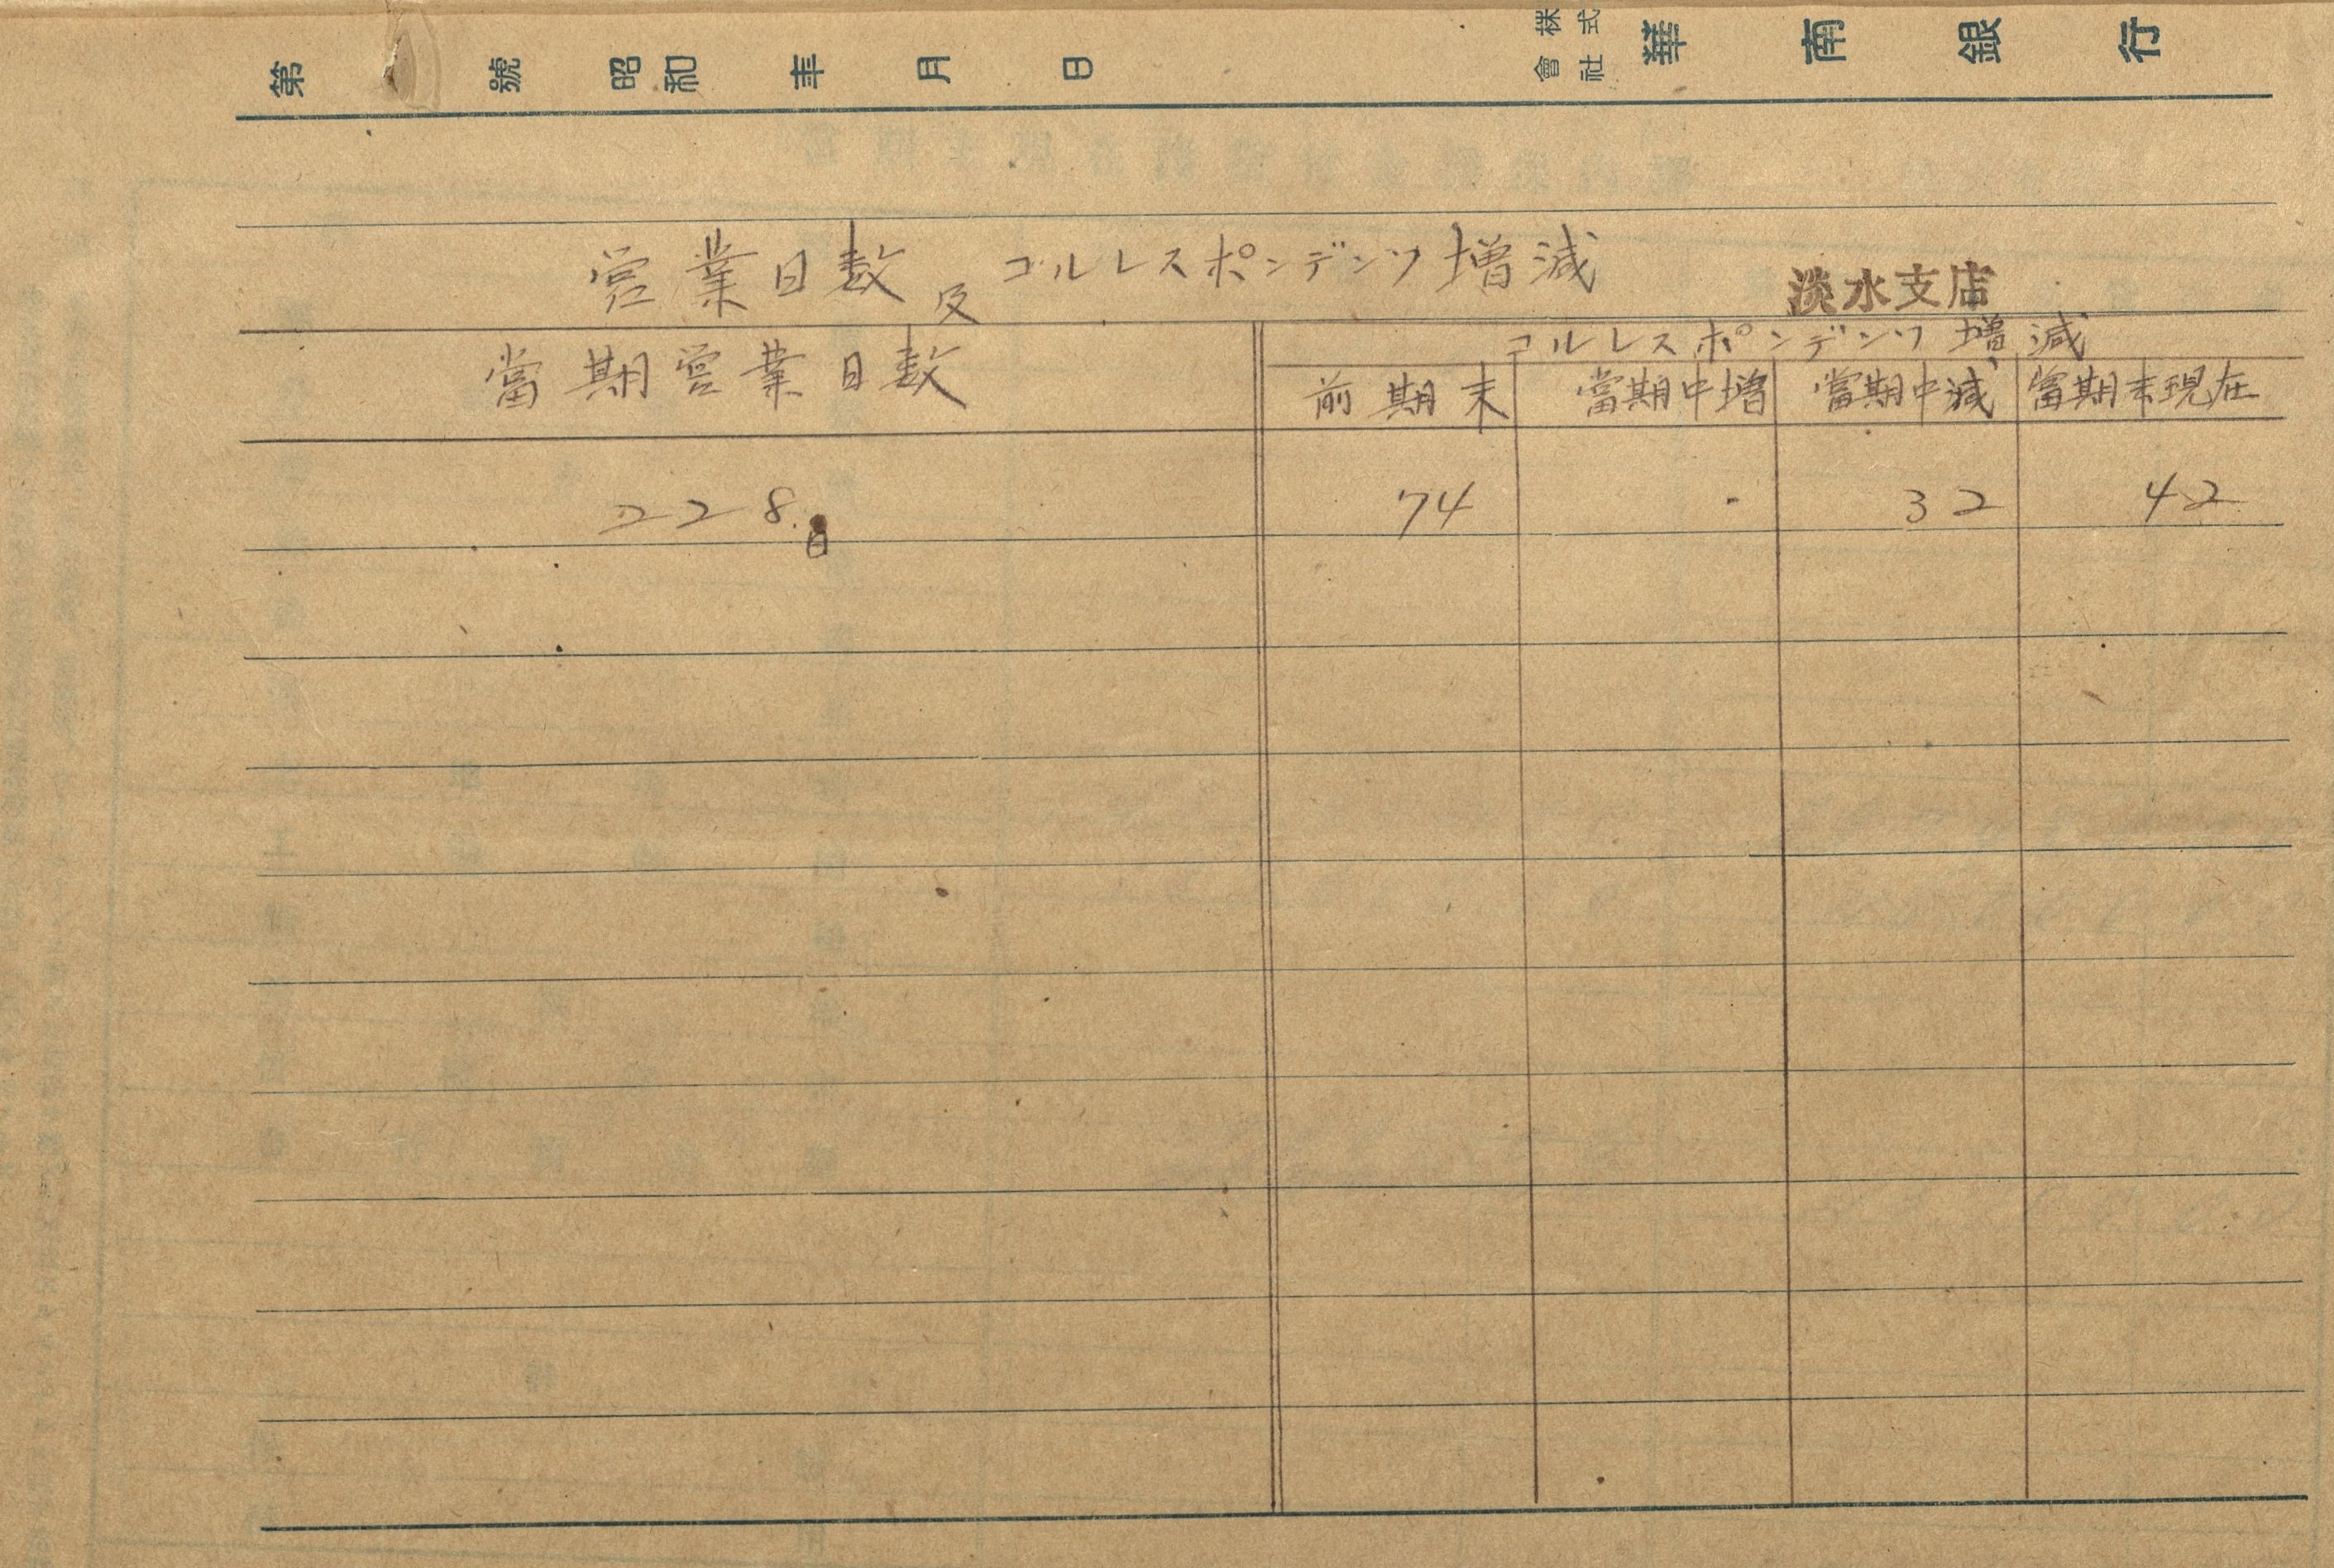 第 號 昭和 年 月 日 株式會社 華南銀行
営業日数及コルレスポンデンツ増減 淡水支店
コルレスポンデンツ増減
當期営業日数 前期末 當期中増 當期中減 當期末現在
228日 74 - 32 42